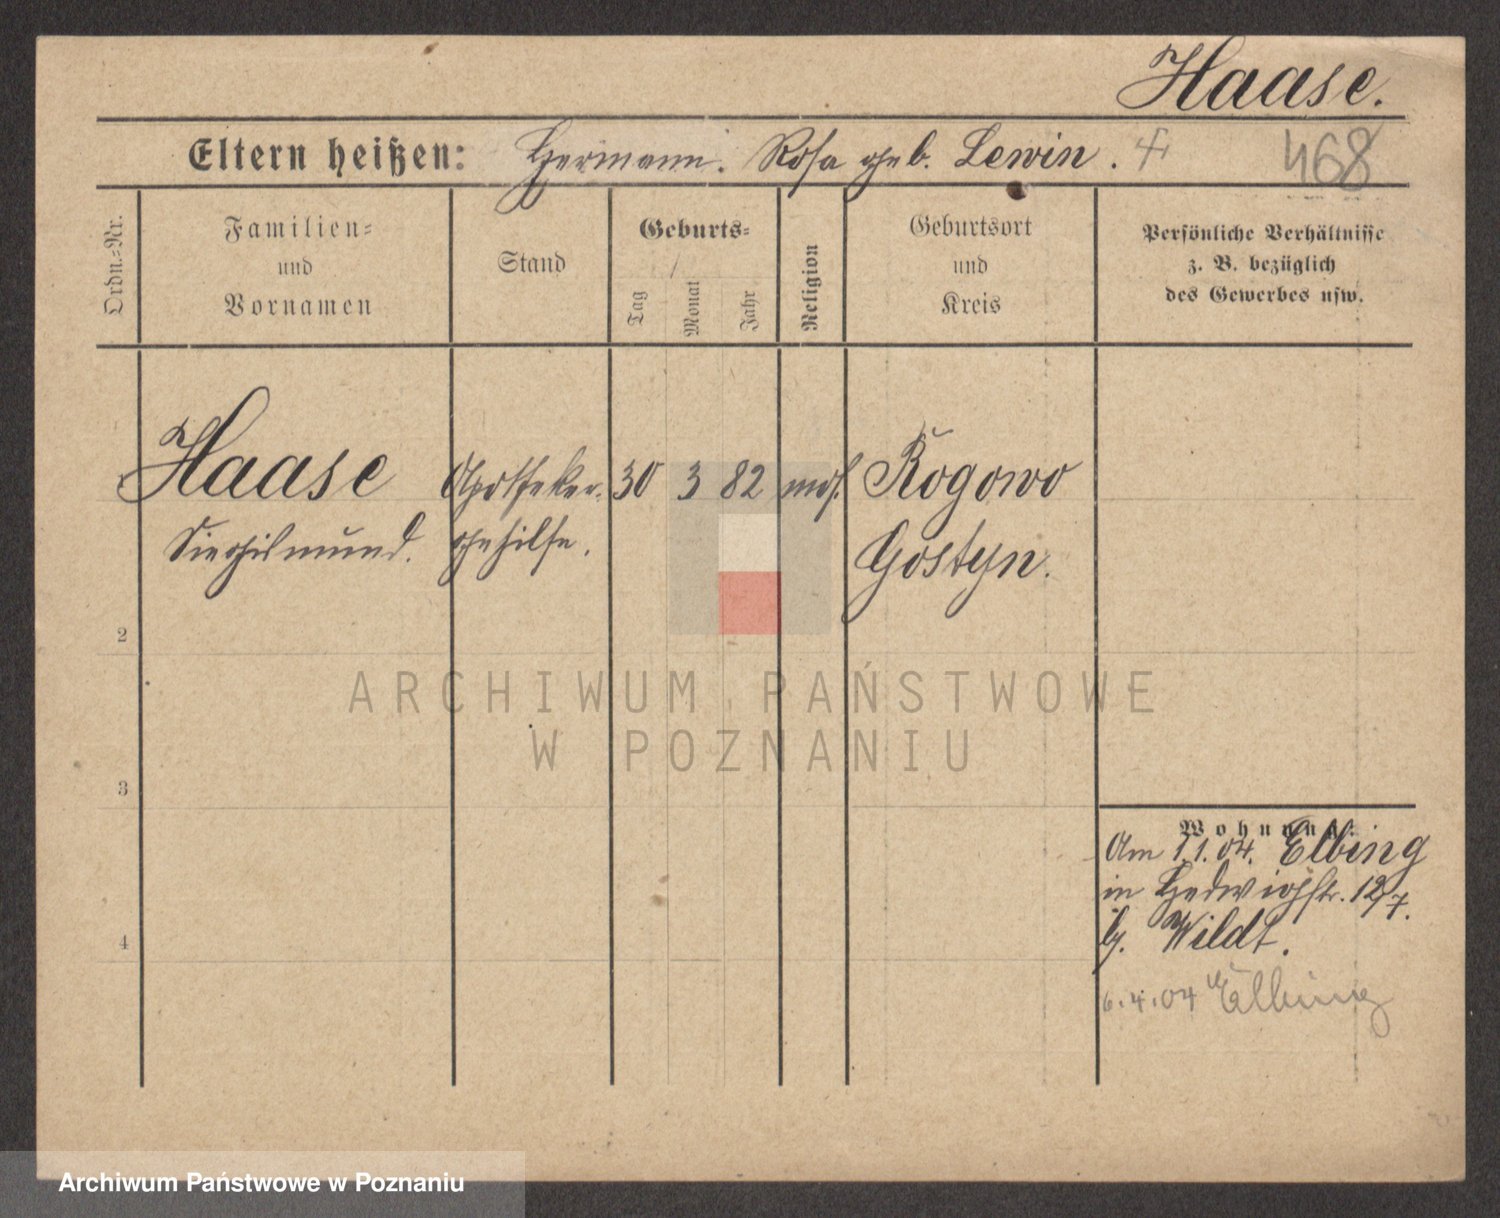 Haase.
Eltern heißen: Hermann. Rosa geb. Lewin. 468
Ordn.-Nr.
Familien-
und
Vornamen
Stand
Geburts-
Tag
Monat
Jahr
Religion
Geburtsort
und
Kreis
Persönliche Verhältnisse
z. B. bezüglich
des Gewerbes usw.
Haase Apotheker- 30 3 82 mos. Rogowo
Siegismund. gehilfe. Gostyn.
2
ARCHIWUM PAŃSTWOWE
W POZNANIU
3
Wohnung:
Am 1.1.04. Elbing
in Hedwigstr. 12/7.
b. Wildt.
6.4.04 Elbing
4
Archiwum Państwowe w Poznaniu